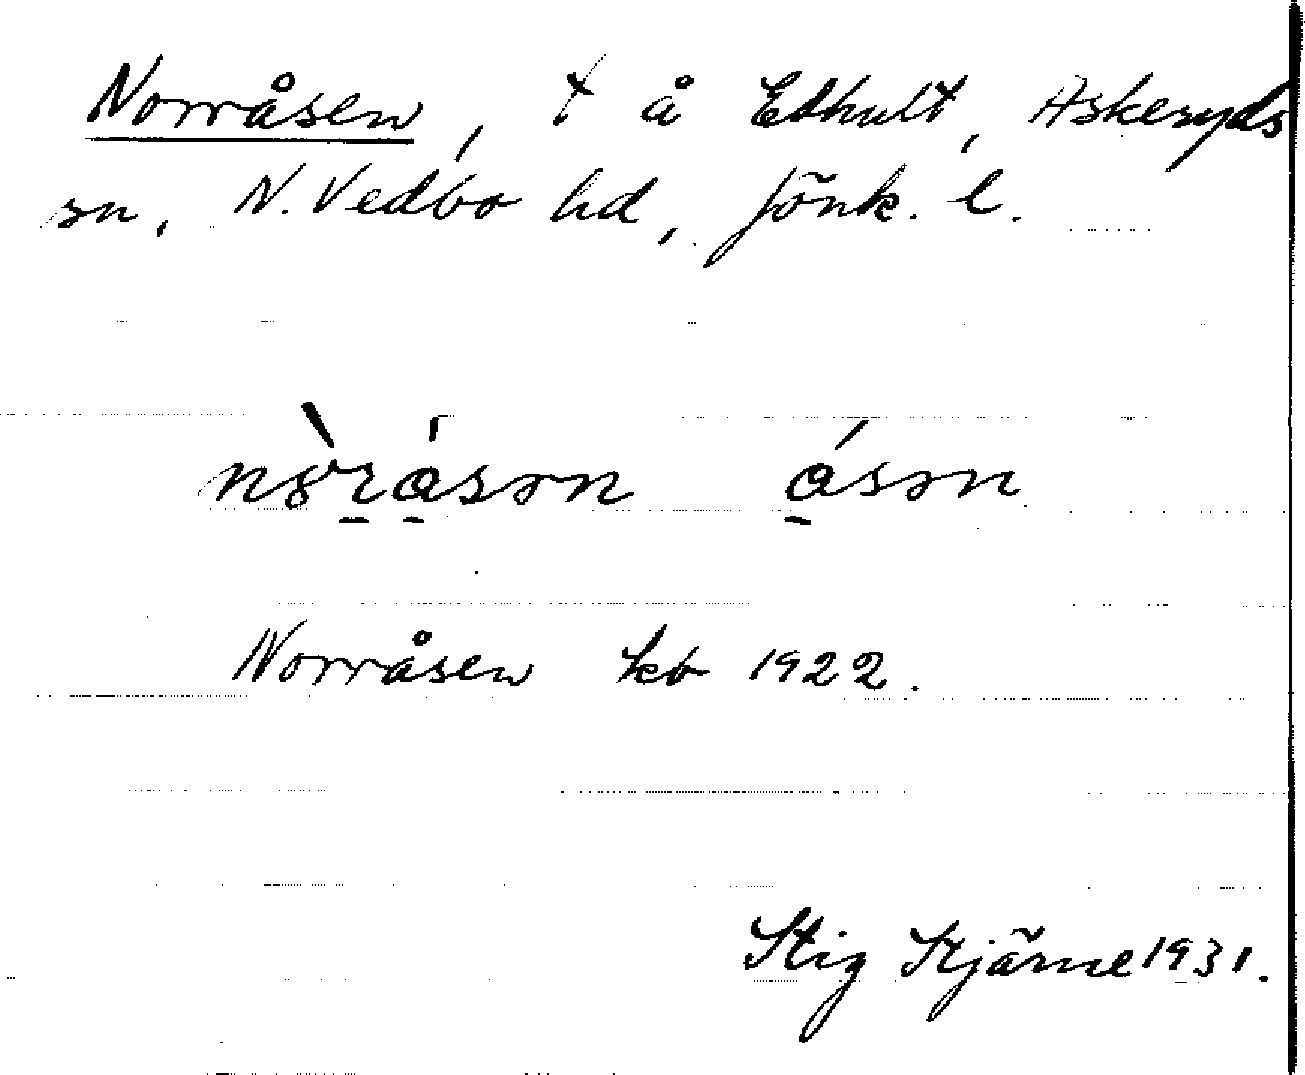 Norråsen, t å Edhult, Askeryds
sn, N. Vedbo hd, Jönk. l.
åsən
Norråsen kb 1922.
Stig Stjärne 1931.